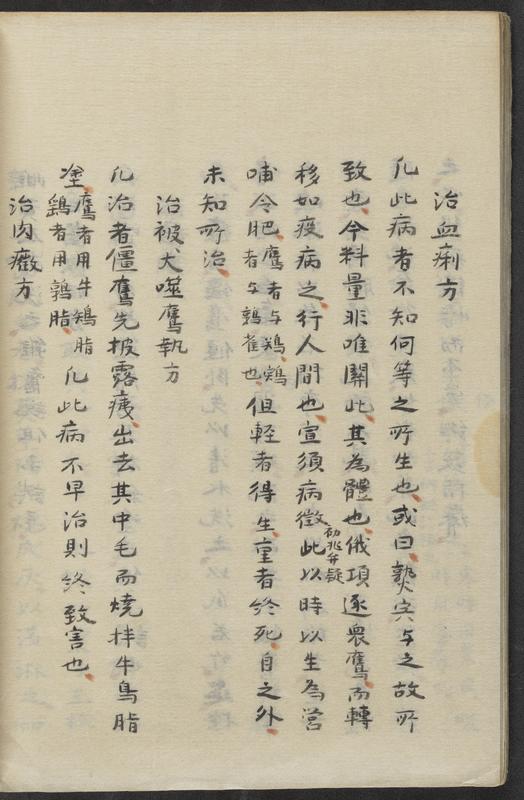 治血痢方
凡此病者不知何等之所生也或曰熱宍与之故所
致也今料量非唯關此其為體也俄頃逐眾鷹而轉
移如疫病之行人間也宣須病徵初兆弁疑此以時以生為営
哺令肥鷹者与鳩鵐鷂者与鶉雀也但軽者得生重者終死自之外
未知所治
治被犬噬鷹執方
凡治者僵鷹先披露痍出去其中毛而燒拌牛鳥脂
塗鷹者用牛鵄脂鷂者用鶉脂凡此病不早治則終致害也
治肉癥方